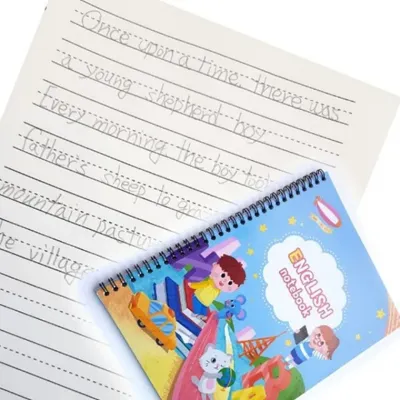 Once upon a time, there was
a young shepherd boy
Every morning the boy took
father's sheep to
mountain
the village
ENGLISH
notebook